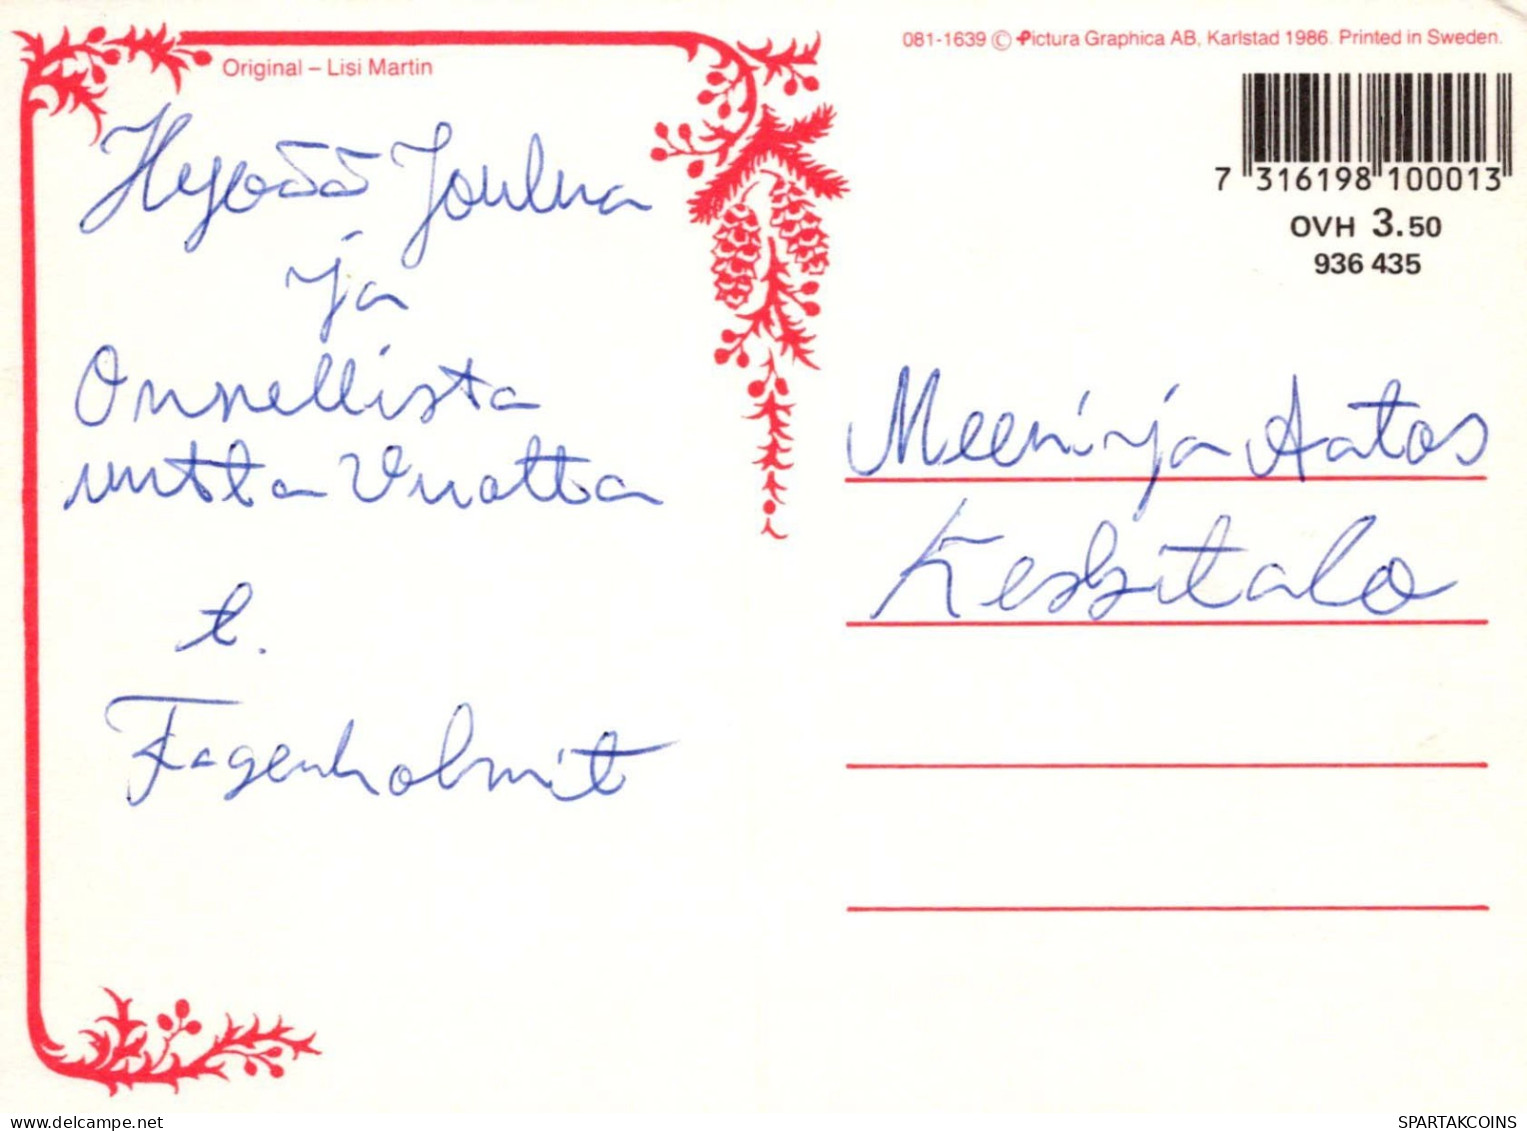 Original – Lisi Martin
081-1639 © Pictura Graphica AB, Karlstad 1986. Printed in Sweden.
7 316198 100013
OVH 3.50
936 435
Hyvää Joulua
ja
Onnellista
uutta Vuotta
t.
Fagenholmit
Meeri ja Aatos
Keskitalo
delcampe.net
SPARTAKCOINS